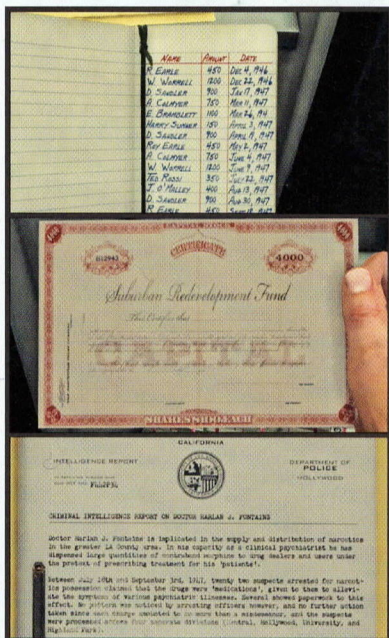 NAME AMOUNT DATE
R EARLE 450 DEC 4, 1946
W. WORRELL 1200 DEC 22, 1946
D. SANDLER 900 JAN 17, 1947
A. COLMYER 750 MAR 11, 1947
E. BRAMLETT 1100 MAR 26, 1947
HARRY SUMNER 150 APRIL 3, 1947
D. SANDLER 900 APRIL 19, 1947
ROY EARLE 450 MAY 2, 1947
A. COLMYER 750 JUNE 4, 1947
W. WORRELL 1200 JUNE 9, 1947
TED ROSSI 350 JULY 22, 1947
J. O'MALLEY 400 AUG 13, 1947
D. SANDLER 900 AUG 30, 1947
R EARLE 450
CAPITAL STOCK
100 100
CERTIFICATE
4000
Suburban Redevelopment Fund
This Certifies that
CAPITAL
SHARES $100 EACH
CALIFORNIA
INTELLIGENCE REPORT
DEPARTMENT OF
POLICE
HOLLYWOOD
CRIMINAL INTELLIGENCE REPORT ON DOCTOR HARLAN J. FONTAINE
Doctor Harlan J. Fontaine is implicated in the supply and distribution of narcotics
in the greater LA County area. In his capacity as a clinical psychiatrist he has
dispensed large quantities of contraband morphine to drug dealers and users under
the pretext of prescribing treatment for his 'patients'.
Between July 18th and September 3rd, 1947, twenty two suspects arrested for narcot-
ics possession claimed that the drugs were 'medications', given to them to allevi-
ate the symptoms of various psychiatric illnesses. Several showed paperwork to this
effect. No pattern was noticed by arresting officers however, and no further action
taken since each charge amounted to no more than a misdemeanor, and the suspects
were processed across four separate divisions (Central, Hollywood, University, and
Highland Park).